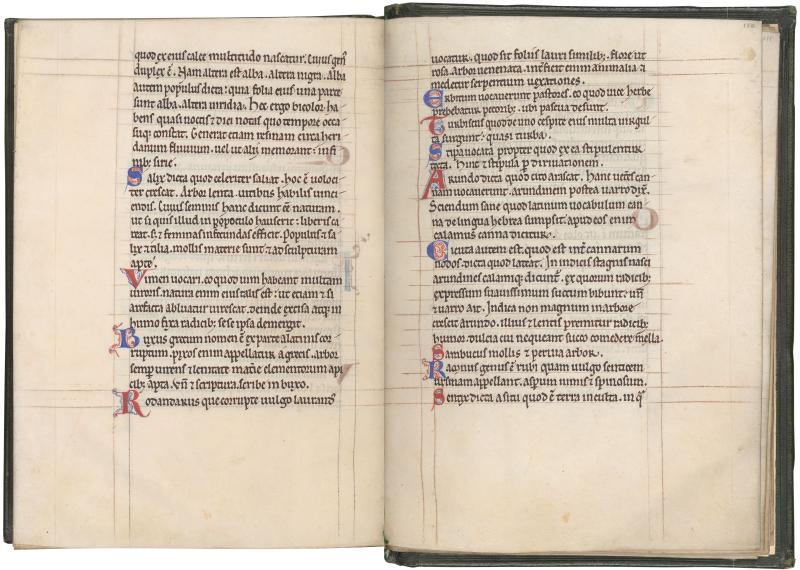 quod ex eius calce multitudo nascatur. Cuius gen̄
duplex ē. Nam altera est alba. altera nigra. Alba
autem populus dicta: quia folia eius una parte
sunt alba. altera uiridia. Hec ergo bicolor. ha
bens quasi noctis & diei notas quo tempore occa
suq; constat. Generat etiam resinam circa heri
danum fluuium. uel ut alij memorant: in fi
nib; sirie.
Salix dicta quod celeriter saliat. hoc ē ueloci
ter crescat. Arbor lenta. uitibus habilis uinci
endis. Cuius seminis hanc dicunt eē naturam.
ut si quis illud in poculo hauserit: liberis ca
reat. s; & feminas infecundas efficit. Populus & sa
lix & tilia. mollis materie sunt & ad sculpturam
apte.
Vimen uocari. eo quod uim habeant multam
uiroris. natura enim eius talis est: ut etiam & si
arefacta abluatur uirescat. deinde excisa atq; in
humo fixa radicib; sese ipsa demergit.
Buxus grecum nomen ē ex parte a latinis cor
ruptum. pixos enim appellatur a grecis. arbor
semp uirens & lenitate materie elementorum api
cib; apta. Vn̄ & scriptura. scribe in buxo.
Rodandarus que corrupte uulgo laurand
uocatur. quod sit foliis lauri similib; flore ut
rosa. Arbor uenenata. int̄ficit enim animalia &
medetur serpentium uexationes.
Erbitum uocauerunt pastores. eo quod uice herbe
prebebatur pecorib; ubi pascua desunt.
Turbiscus quod de uno cespite eius multa uirgul
ta surgunt: quasi turba.
Stipa uocata propter quod ex ea stipulentur
tecta. Hinc & stipula p diriuationem.
Arundo dicta quod cito arascat. Hanc ueteres can
nam uocauerunt. arundinem postea uarro dix̄.
Sciendum sane quod latinum uocabulum can
na de lingua hebrea sumpsit. apud eos enim
calamus canna dicitur.
Cicuta autem est. quod est int̄ cannarum
nodos. dicta quod lateat. In indicis stagnis nasci
arundines calamiq; dicunt. ex quorum radicib;
expressum suauissimum succum bibunt. un̄
& uarro ait. Indica non magnum in arbore
crescit arundo. illius & lentis premitur radicib;
humor. dulcia cui nequeant succo concedere mella.
Sambucus mollis & peruia arbor.
Ramnus genus ē rubi quam uulgo senticem
ursinam appellant. asperum nimis & spinosum.
Sentix dicta a situ quod ē terra inculta. in q̄